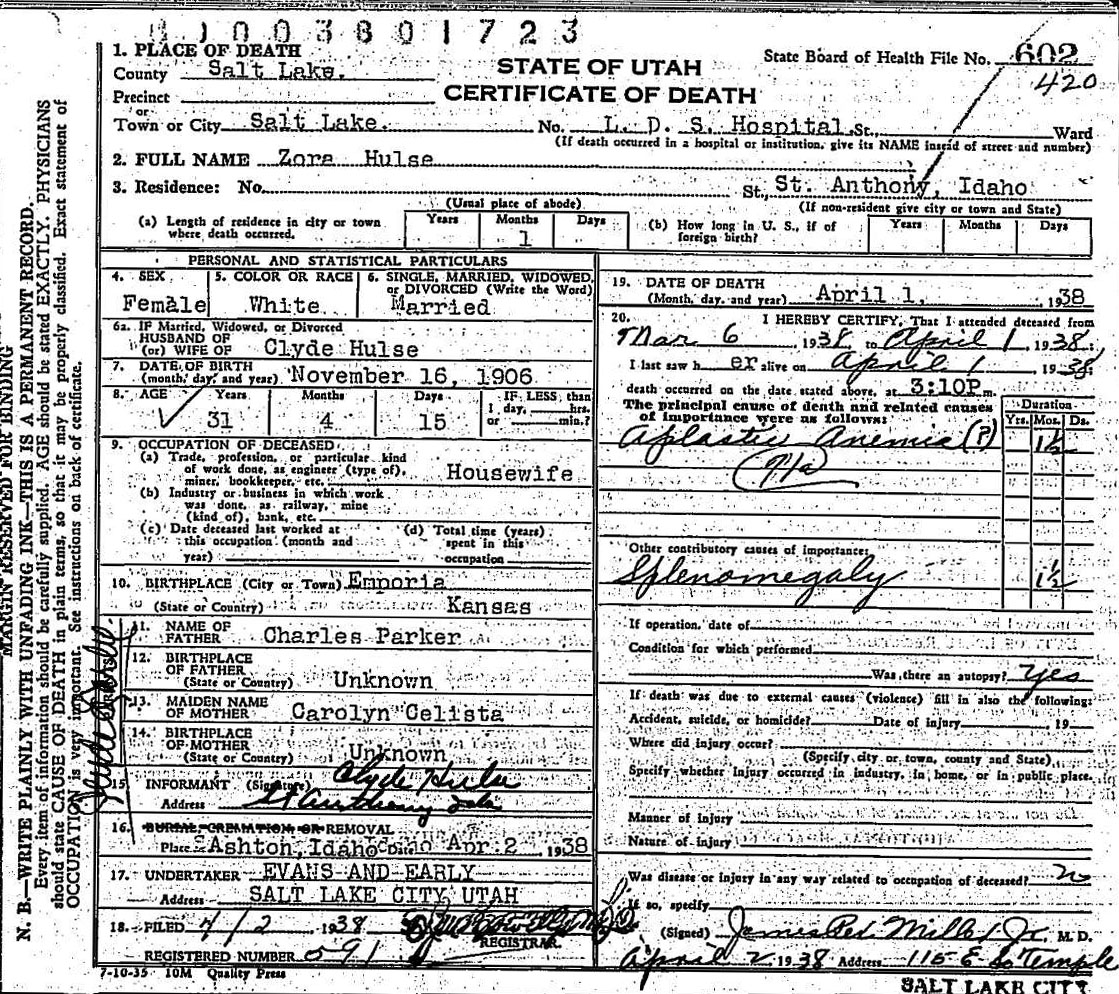 1003801723
1. PLACE OF DEATH
County Salt Lake.
Precinct
or
Town or City Salt Lake. No. L. D. S. Hospital St., Ward
(If death occurred in a hospital or institution, give its NAME instead of street and number)
STATE OF UTAH
CERTIFICATE OF DEATH
State Board of Health File No. 602
420
2. FULL NAME Zora Hulse
3. Residence: No. St., St. Anthony, Idaho
(Usual place of abode) (If non-resident give city or town and State)
(a) Length of residence in city or town where death occurred. Years Months 1 Days
(b) How long in U. S., if of foreign birth? Years Months Days
PERSONAL AND STATISTICAL PARTICULARS
4. SEX Female
5. COLOR OR RACE White
6. SINGLE, MARRIED, WIDOWED, or DIVORCED (Write the Word) Married
6a. IF Married, Widowed, or Divorced
HUSBAND OF
(or) WIFE OF Clyde Hulse
7. DATE OF BIRTH
(month, day, and year) November 16, 1906
8. AGE Years 31 Months 4 Days 15 IF LESS than 1 day, hrs. or min.?
9. OCCUPATION OF DECEASED
(a) Trade, profession, or particular kind
of work done, as engineer (type of),
miner, bookkeeper, etc. Housewife
(b) Industry or business in which work
was done, as railway, mine
(kind of), bank, etc.
(c) Date deceased last worked at this occupation (month and year)
(d) Total time (years) spent in this occupation
10. BIRTHPLACE (City or Town) Emporia
(State or Country) Kansas
11. NAME OF
FATHER Charles Parker
12. BIRTHPLACE
OF FATHER
(State or Country) Unknown
13. MAIDEN NAME
OF MOTHER Carolyn Celista
14. BIRTHPLACE
OF MOTHER
(State or Country) Unknown
15. INFORMANT (Signature) Clyde Hulse
Address St Anthony Ida
16. BURIAL, CREMATION, OR REMOVAL
Place Ashton, Idaho Date Apr 2 1938
17. UNDERTAKER EVANS AND EARLY
Address SALT LAKE CITY UTAH
18. FILED 4/2 1938
REGISTRAR.
REGISTERED NUMBER 591
7-10-35 10M Quality Press
19. DATE OF DEATH
(Month, day, and year) April 1, 1938
20. I HEREBY CERTIFY, That I attended deceased from
Mar 6 1938, to April 1 1938.
I last saw h er alive on April 1 1938;
death occurred on the date stated above, at 3:10P m.
The principal cause of death and related causes
of importance were as follows: Duration
Yrs. Mos. Ds.
Aplastic Anemia (P) 1½
Other contributory causes of importance:
Splenomegaly 1½
If operation, date of
Condition for which performed
Was there an autopsy? yes
If death was due to external causes (violence) fill in also the following:
Accident, suicide, or homicide? Date of injury 19
Where did injury occur?
(Specify city or town, county and State)
Specify whether injury occurred in industry, in home, or in public place.
Manner of injury
Nature of injury
Was disease or injury in any way related to occupation of deceased? no
If so, specify
(Signed) James Miller Jr M. D.
April 2 1938 Address 115 E So Temple
SALT LAKE CITY
MARGIN RESERVED FOR BINDING
N. B.—WRITE PLAINLY WITH UNFADING INK—THIS IS A PERMANENT RECORD.
Every item of information should be carefully supplied. AGE should be stated EXACTLY. PHYSICIANS
should state CAUSE OF DEATH in plain terms, so that it may be properly classified. Exact statement of
OCCUPATION is very important. See instructions on back of certificate.